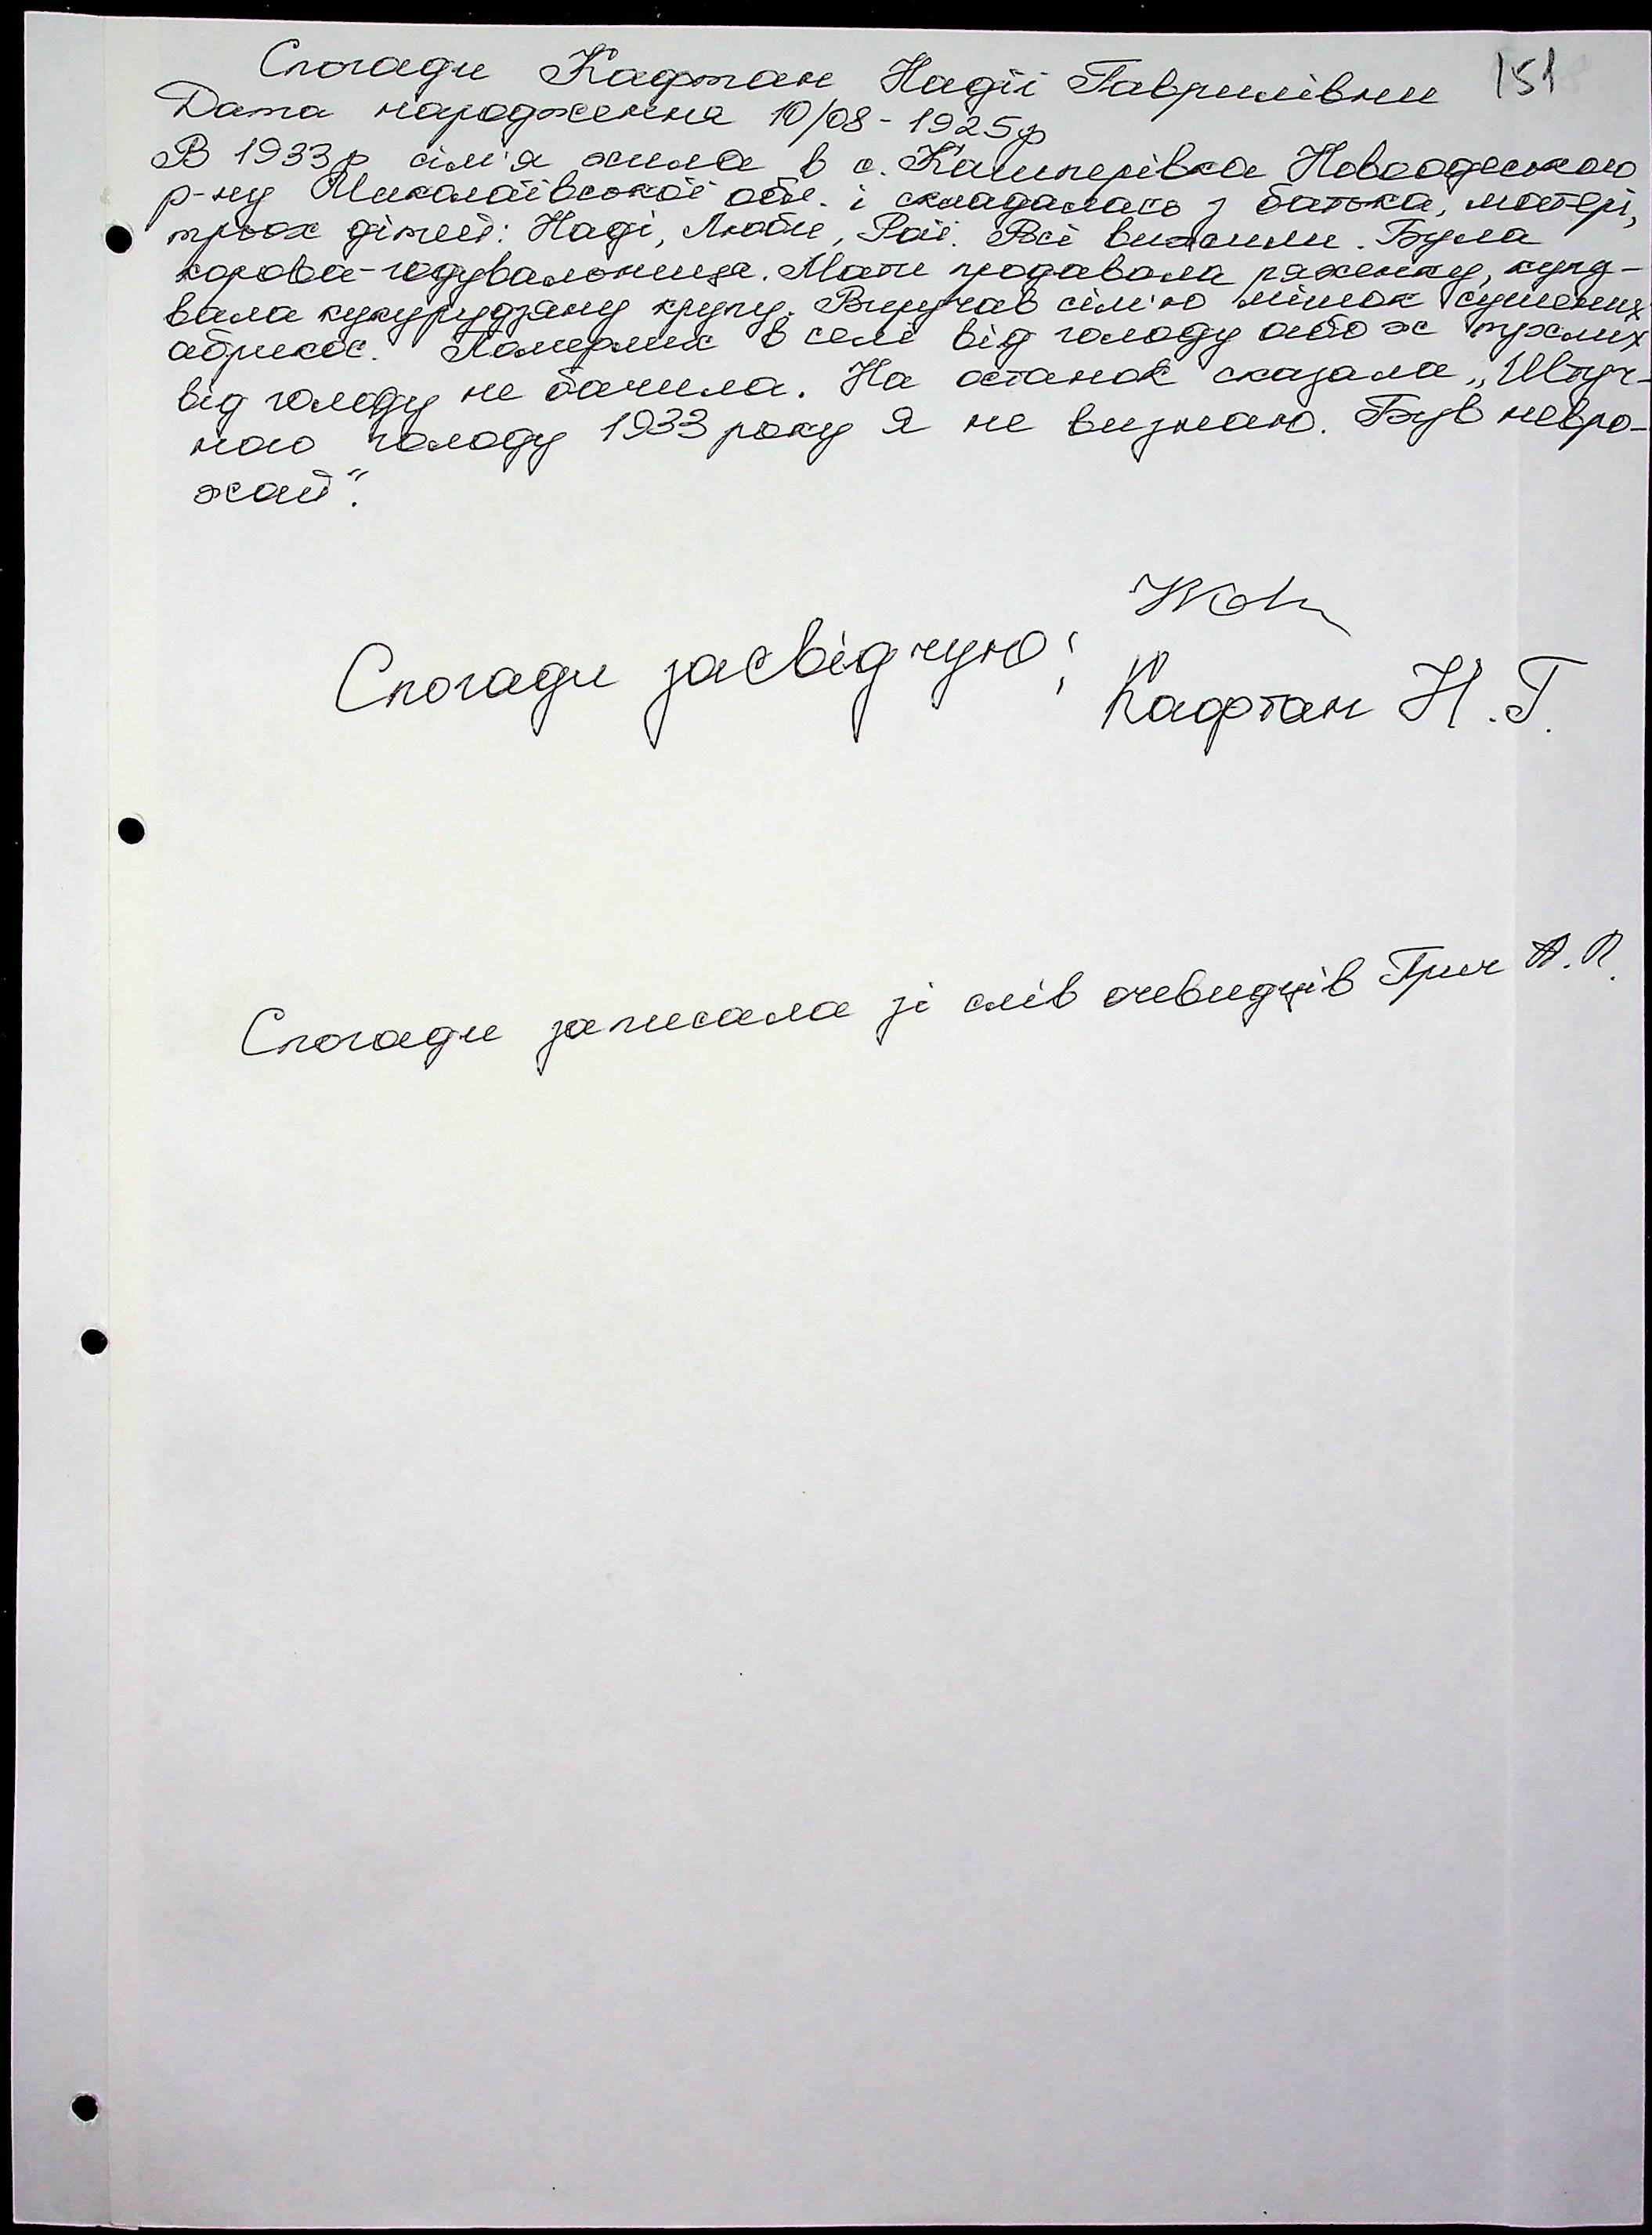 Спогади Кафтан Надії Гаврилівни 151
Дата народження 10/08 - 1925 р
В 1933 р сім'я жила в с. Кашперівка Новоодеського
р-ну Миколаївської обл. і складалась з батька, матері,
трьох дітей: Наді, Люби, Раї. Всі вижили. Була
корова-годувальниця. Мати продавала ряженку, купу-
вала кукурудзяну крупу. Виручав сім'ю мішок сушених
абрикос. Померлих в селі від голоду або ж
від голоду не бачила. На останок сказала „Штуч-
ного голоду 1933 року я не визнаю. Був невро-
жай".
Спогади засвідчую:
Кафтан Н.Г.
Спогади записала зі слів очевидців Грич А.П.